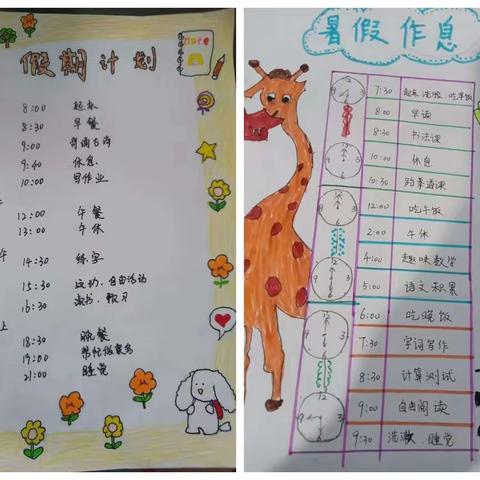 假期计划
note
8:00 起床
8:30 早餐
9:00 背诵古诗
9:40 休息
10:00 写作业
12:00 午餐
13:00 午休
14:30 练字
15:30 运动、自由活动
16:30 读书、歌习
上
18:30 晚餐
19:00 帮忙做家务
21:00 睡觉
暑假作息
7:30 起床、洗脸、吃早饭
8:00 早读
8:30 书法课
10:00 休息
10:30 跆拳道课
12:00 吃午饭
2:00 午休
4:00 趣味数学
5:00 语文积累
6:00 吃晚饭
7:30 字词写作
8:30 计算测试
9:00 自由阅读
9:30 洗漱、睡觉